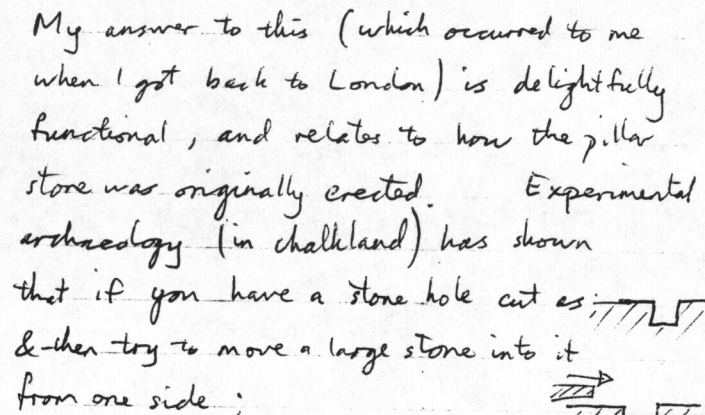 My answer to this (which occurred to me
when I got back to London) is delightfully
functional, and relates to how the pillar
stone was originally erected. Experimental
archaeology (in chalkland) has shown
that if you have a stone hole cut as:
& then try to move a large stone into it
from one side: